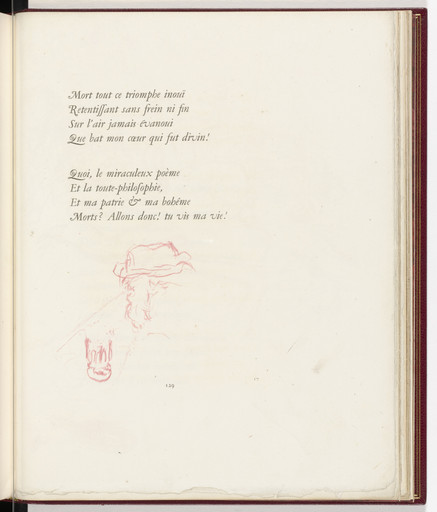 Mort tout ce triomphe inouï
Retentiſſant sans frein ni fin
Sur l'air jamais évanoui
Que bat mon cœur qui fut divin!
Quoi, le miraculeux poème
Et la toute-philoſophie,
Et ma patrie & ma bohème
Morts? Allons donc! tu vis ma vie!
129